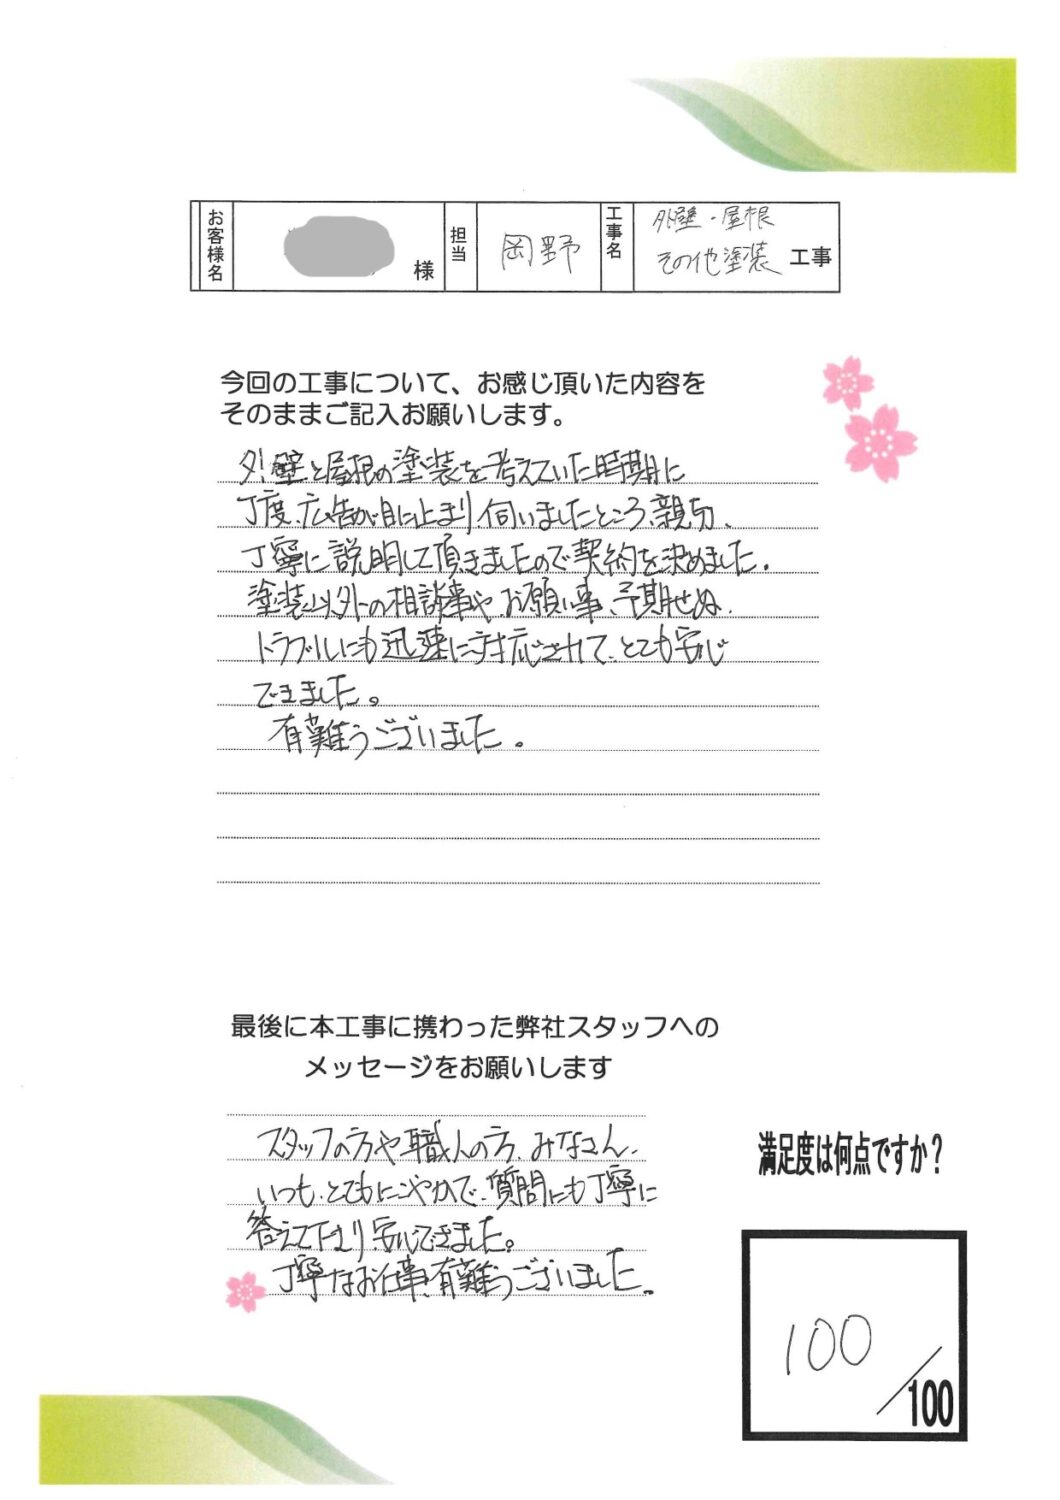 お客様名 様 担当 岡野 工事名 外壁・屋根
その他塗装 工事
今回の工事について、お感じ頂いた内容を
そのままご記入お願いします。
外壁と屋根の塗装を考えていた時期に
丁度、広告が目に止まり、伺いましたところ、親切、
丁寧に説明して頂きましたので契約を決めました。
塗装以外の相談事や、お願い事、予期せぬ、
トラブルにも迅速に対応されて、とても安心
できました。
有難うございました。
最後に本工事に携わった弊社スタッフへの
メッセージをお願いします
スタッフの方や職人の方、みなさん、
いつも、とてもにこやかで、質問にも丁寧に
答えて下さり、安心できました。
丁寧なお仕事、有難うございました。
満足度は何点ですか?
100/100